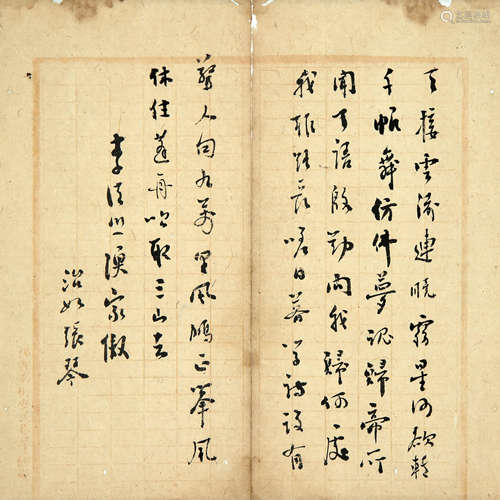 天接雲濤連曉霧星河欲轉
千帆舞仿佛夢魂歸帝所
聞天語殷勤問我歸何處
我報路長嗟日暮學詩謾有
驚人句九萬里風鵬正舉風
休住蓬舟吹取三山去
李清照漁家傲
治如張琴